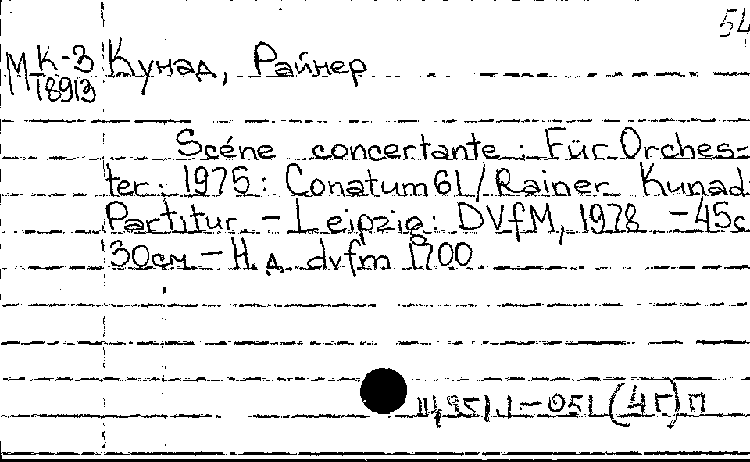 54
М К-3 Кунад, Райнер
18913
Scéne concertante : Für Orches-
ter : 1975 : Conatum 61 / Rainer Kunad.
Partitur. - Leipzig : DVfM, 1978 - 45с
30см - Н.д. dvfm 1700
Щ951.1-051(4Г)П